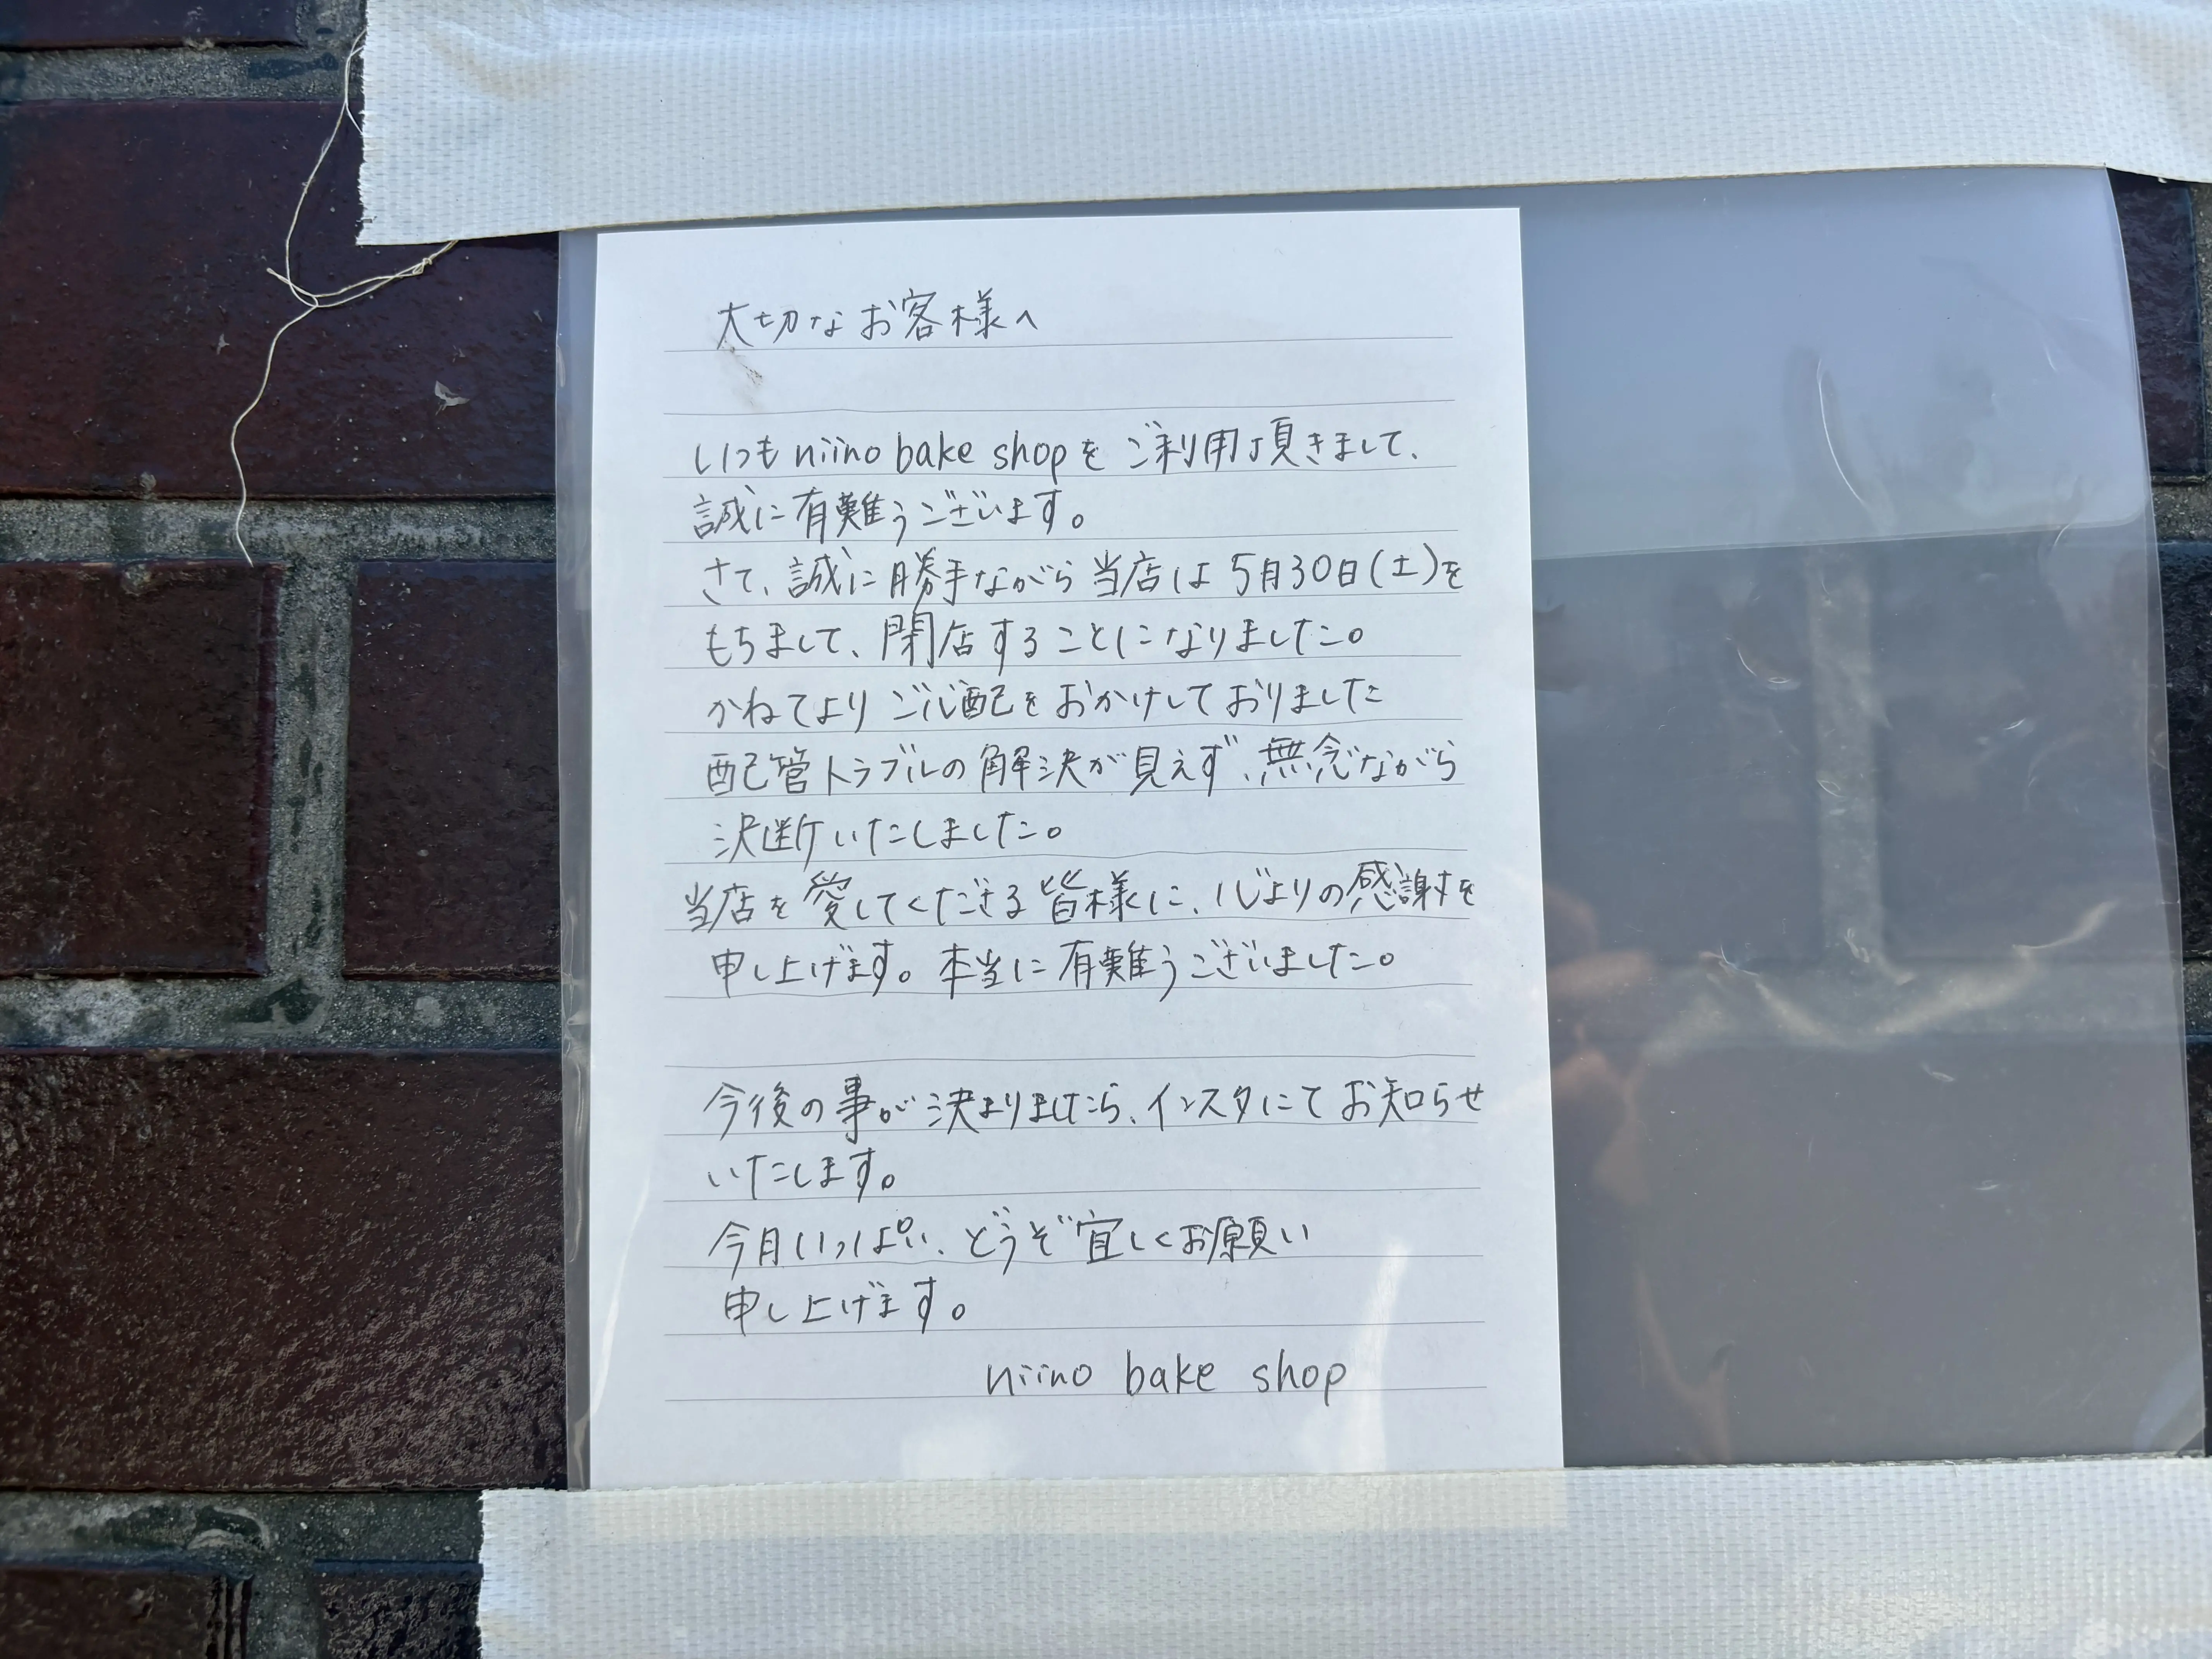 大切なお客様へ
いつもniino bake shopをご利用頂きまして、
誠に有難うございます。
さて、誠に勝手ながら当店は5月30日(土)を
もちまして、閉店することになりました。
かねてよりご心配をおかけしておりました
配管トラブルの解決が見えず、無念ながら
決断いたしました。
当店を愛してくださる皆様に、心よりの感謝を
申し上げます。本当に有難うございました。
今後の事が決まりましたら、インスタにてお知らせ
いたします。
今月いっぱい、どうぞ宜しくお願い
申し上げます。
niino bake shop